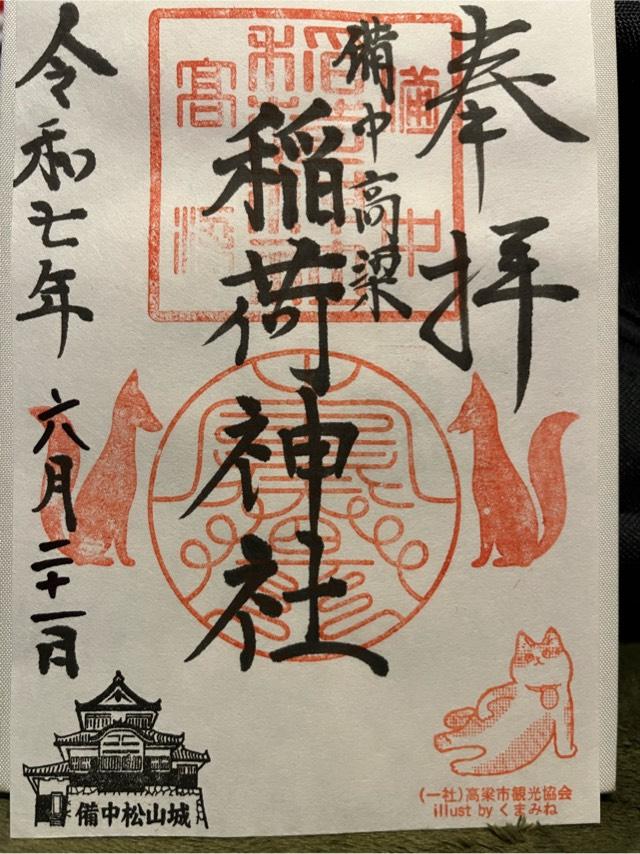 奉拝
備中高梁
稲荷神社
令和七年 六月二十一日
備中松山城
(一社)高梁市観光協会
illust by くまみね